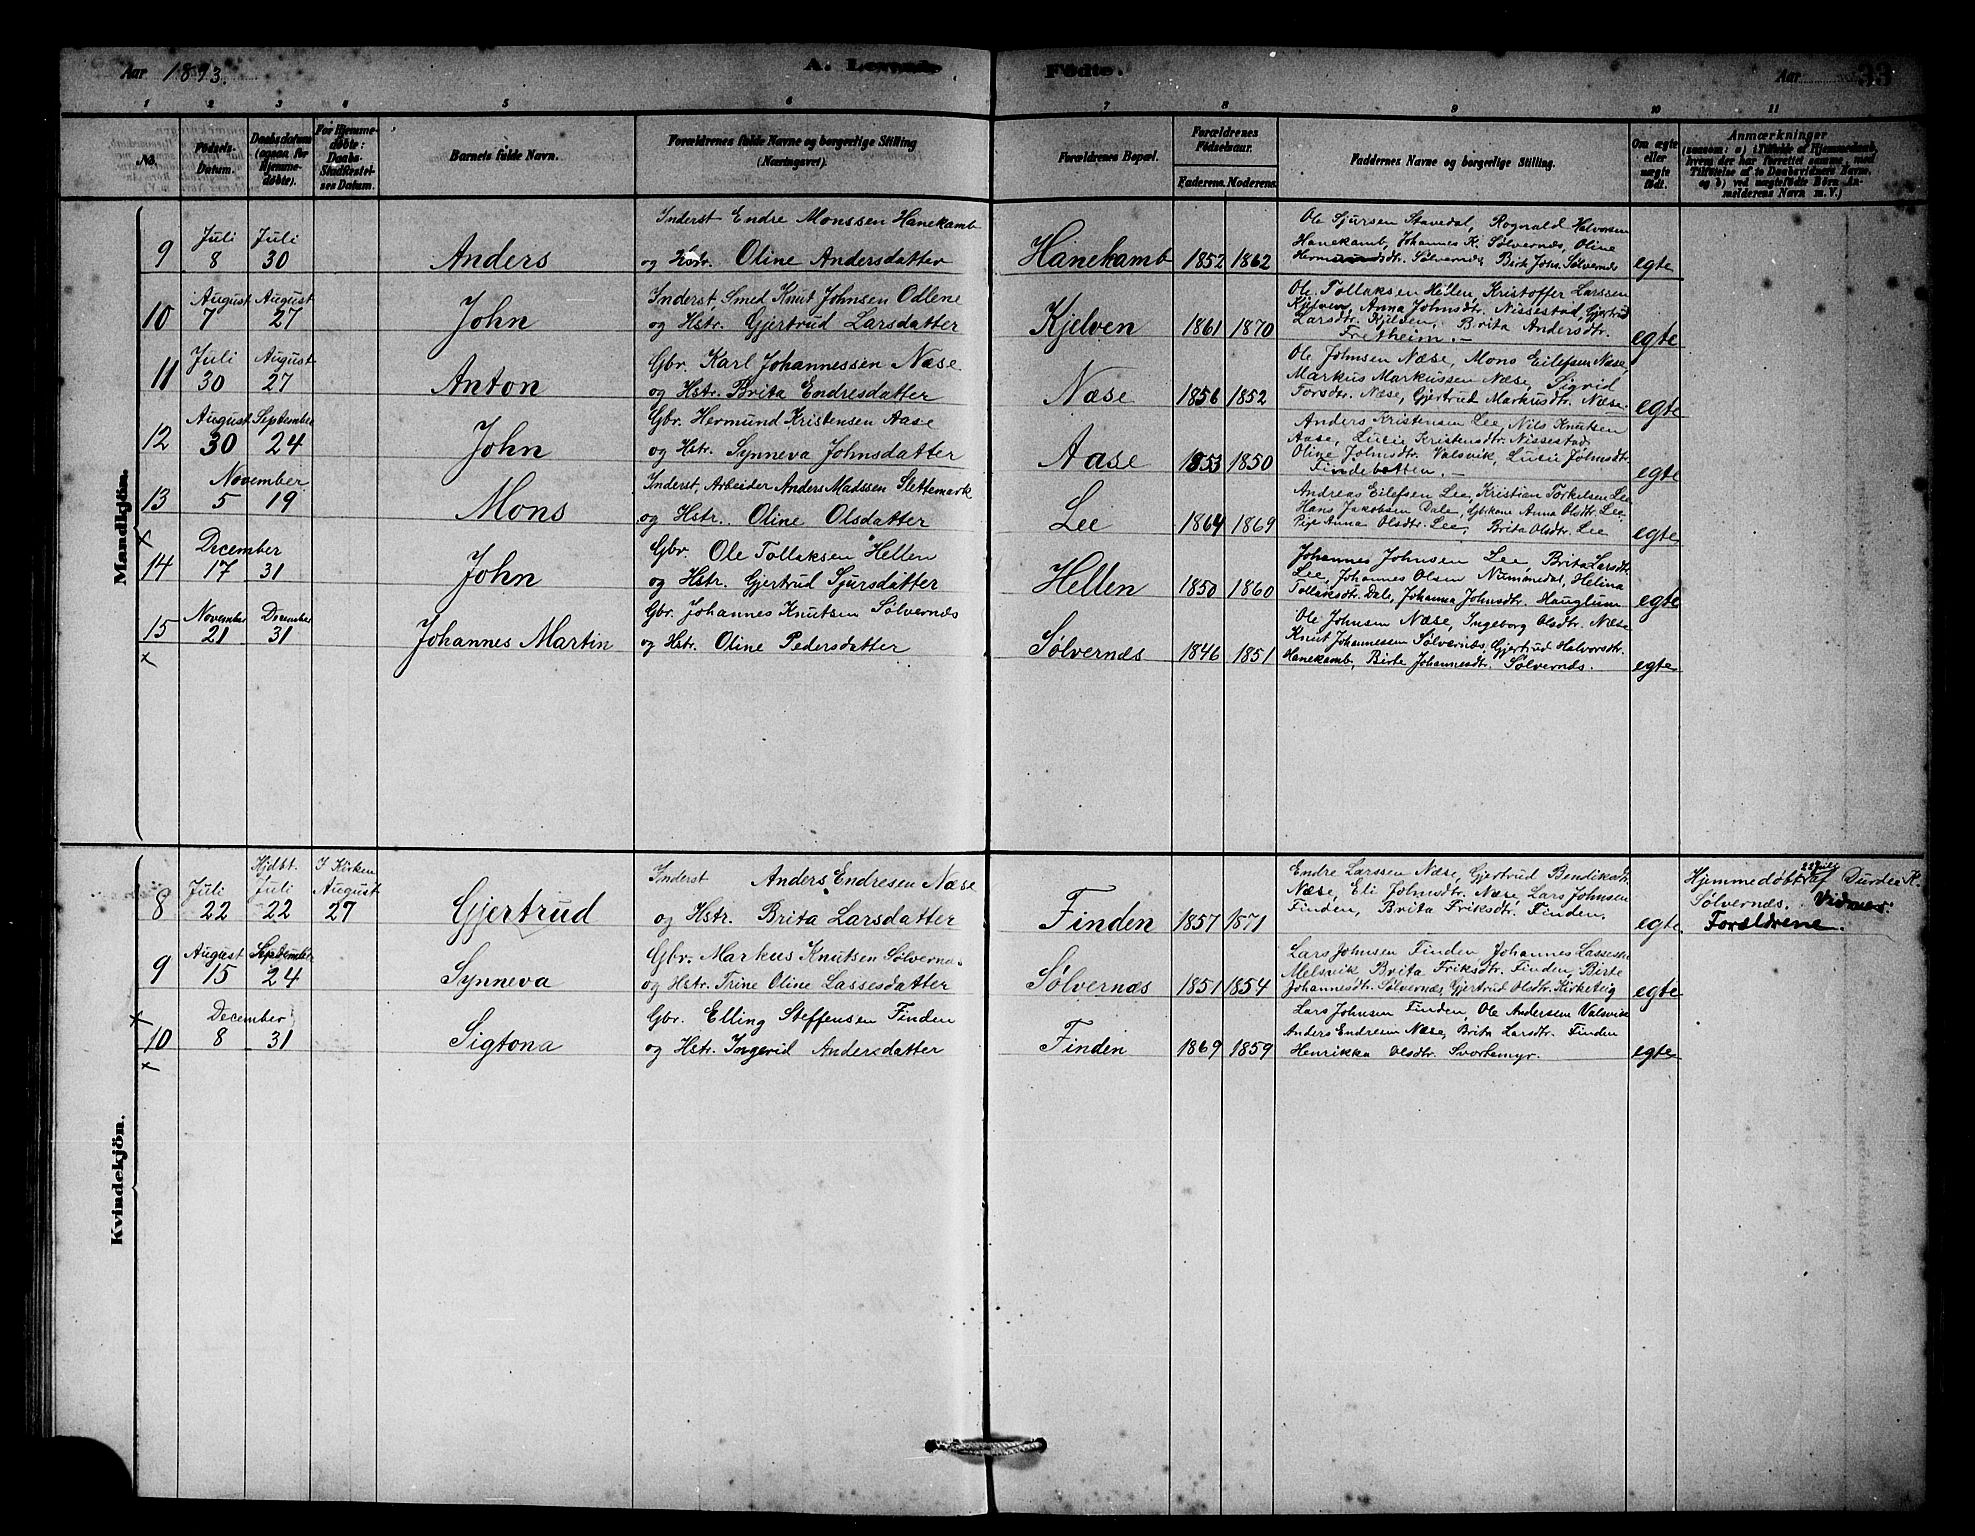 Aar 1893.
A. Levende
Fødte.
Aar
33
1 2 3 4 5 6 7 8 9 10 11
No.
Fødsels-
Datum.
Daabsdatum
(ogsaa for
Hjemme-
døbte).
For Hjemme-
døbte:
Daabs-
Stadfæstel-
ses Datum.
Barnets fulde Navn.
Forældrenes fulde Navne og borgerlige Stilling
(Næringsvei).
Forældrenes Bopæl.
Forældrenes
Fødselsaar.
Faderens. Moderens.
Faddernes Navne og borgerlige Stilling.
Om ægte
eller
uægte
født.
Anmærkninger
(saasom: a) i Tilfælde af Hjemmedaab,
hvem der har forrettet samme, med
Tilføielse af to Daabsvidners Navne,
og b) ved uægtefødte Børn An-
melderens Navn m. V.)
Mandkjön.
9
Juli
8
Juli
30
Anders
Inderst Endre Monssen Hanekamb
og Hstr. Oline Andersdatter
Hanekamb
1852 1862
Ole Sjursen Stavedal, Rognald Halvorsen
Hanekamb, Johannes K. Sølvernæs, Oline
Hermundsdtr. Sølvernæs, Birte Joh. Sølvernæs
egte
10
August
7
August
27
John
Inderst, Smed Knut Johnsen Odlene
og Hstr. Gjertrud Larsdatter
Kjelven
1861 1870
Ole Tollaksen Hellen, Kristoffer Larssen
Kjelven, Anna Johnsdtr. Nissestad, Gjertrud
Larsdtr. Kjelven, Brita Andersdtr.
Fritheim.-
egte
11
Juli
30
August
27
Anton
Gbr. Karl Johannessen Næse
og Hstr. Brita Endresdatter
Næse
1856 1852
Ole Johnsen Næse, Mons Eilefsen Næse,
Markus Markussen Næse, Sigrid
Torsdtr. Næse, Gjertrud Markusdtr. Næse.
egte
12
August
30
September
24
John
Gbr. Hermund Kristensen Aase
og Hstr. Synneva Johnsdatter
Aase
1853 1850
Anders Kristensen Lee, Nils Knutsen
Aase, Lucie Kristensdtr. Nissestad,
Oline Johnsdtr. Valsvik, Lucie Johnsdtr.
Findebotten.-
egte
13
November
5 19
Mons
Inderst, Arbeider Anders Madssen Slettemark
og Hstr. Oline Olsdatter
Lee
1864 1869
Andreas Eilefsen Lee, Kristian Torkelsen Lee
Hans Jakobsen Dale, Gbkone Anna Olsdtr. Lee,
Pige Anna Olsdtr. Lee, Brita Olsdtr. Lee
egte
x
14
December
17 31
John
Gbr. Ole Tollaksen Hellen
og Hstr. Gjertrud Sjursdatter
Hellen
1850 1860
Johannes Johnsen Lee, Brita Larsdtr.
Lee, Johannes Olsen Nummedal, Helina
Tollaksdtr. Dale, Johanna Johnsdtr. Hauglum
egte
15
November
21
December
31
Johannes Martin
Gbr. Johannes Knutsen Sølvernæs
og Hstr. Oline Pedersdatter
Sølvernæs
1846 1851
Ole Johnsen Næse, Ingeborg Olsdtr. Næse
Knut Johannessen Sølvernæs, Gjertrud Halvorsdtr.
Hanekamb, Birte Johannesdtr. Sølvernæs.
egte
x
Kvindekjön.
8
Juli
22
Hjdbt.
Juli
22
I Kirken
August
27
Gjertrud
Inderst Anders Endresen Næse
og Hstr. Brita Larsdatter
Finden
1857 1871
Endre Larssen Næse, Gjertrud Bendiksdtr.
Næse, Eli Johnsdtr. Næse, Lars Johnsen
Finden, Brita Friksdtr. Finden.
egte.
Hjemmedøbt 22 Juli af Durdei K.
Sølvernæs. Vidner:
Forældrene.
9
August
15
September
24
Synneva
Gbr. Markus Knutsen Sølvernæs
og Hstr. Trine Oline Lassesdatter
Sølvernæs
1851 1854
Lars Johnsen Finden Johannes Lassessen
Melsvik Brita Friksdtr. Finden, Birte
Johannesdtr. Sølvernæs, Gjertrud Olsdtr. Kirketeig
egte
x
10
December
8 31
Sigtona
Gbr. Elling Steffensen Finden
og Hstr. Ingerid Andersdatter
Finden
1869 1859
Lars Johnsen Finden, Ole Andersen Valsvik
Anders Endresen Næse, Brita Larsdtr. Finden
Henrikka Olsdtr. Svortemyr.
egte
x